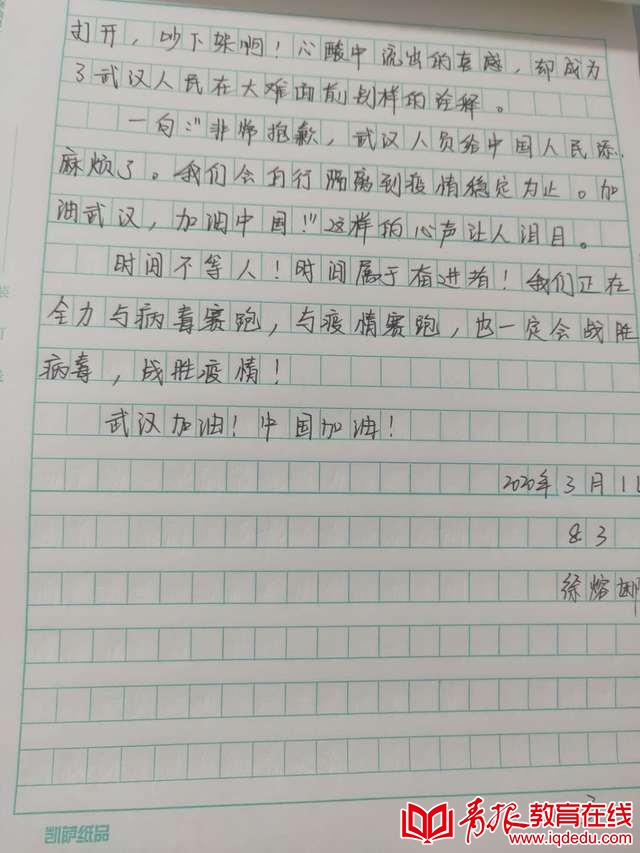 打开，吵下架啊！心酸中流出的喜感，却成为
了武汉人民在大难面前别样的诠释。
一句:“非常抱歉，武汉人员给中国人民添
麻烦了。我们会自行隔离到疫情稳定为止。加
油武汉，加油中国！”这样的心声让人泪目。
时间不等人！时间属于奋进者！我们正在
全力与病毒赛跑，与疫情赛跑，也一定会战胜
病毒，战胜疫情！
武汉加油！中国加油！
2020年3月11
8.3
徐熔
凯萨纸品
青报教育在线
www.iqdedu.com